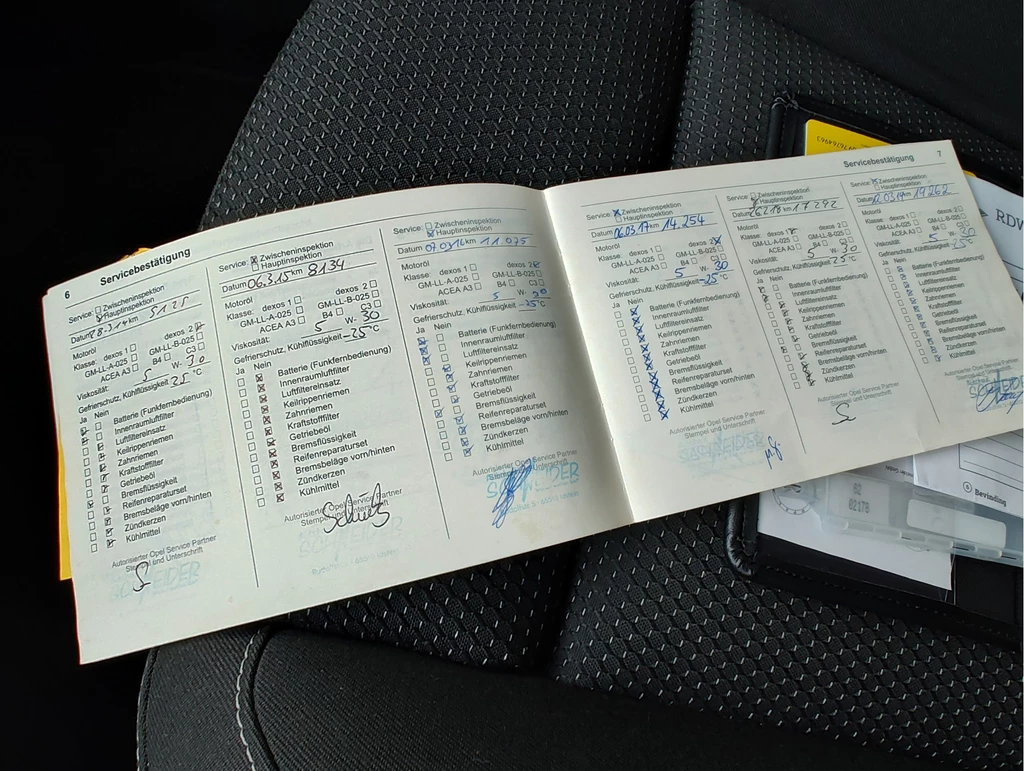 6 Servicebestätigung
Service: Zwischeninspektion
Hauptinspektion
km 5125
Motoröl
Klasse: dexos 1 dexos 2
GM-LL-A-025 GM-LL-B-025
ACEA A3 B4 C3
Viskosität: 5 W- 30
Gefrierschutz, Kühlflüssigkeit -25 °C
Ja Nein
Batterie (Funkfernbedienung)
Innenraumluftfilter
Luftfiltereinsatz
Keilrippenriemen
Zahnriemen
Kraftstofffilter
Getriebeöl
Bremsflüssigkeit
Reifenreparaturset
Bremsbeläge vorn/hinten
Zündkerzen
Kühlmittel
Autorisierter Opel Service Partner
Stempel und Unterschrift
SCHREIDER
Service: Zwischeninspektion
Hauptinspektion
Datum 06.3.15 km 8134
Motoröl
Klasse: dexos 1 dexos 2
GM-LL-A-025 GM-LL-B-025
ACEA A3 B4 C3
Viskosität: 5 W- 30
Gefrierschutz, Kühlflüssigkeit -25 °C
Ja Nein
Batterie (Funkfernbedienung)
Innenraumluftfilter
Luftfiltereinsatz
Keilrippenriemen
Zahnriemen
Kraftstofffilter
Getriebeöl
Bremsflüssigkeit
Reifenreparaturset
Bremsbeläge vorn/hinten
Zündkerzen
Kühlmittel
Autorisierter Opel Service Partner
Stempel und Unterschrift
Service: Zwischeninspektion
Hauptinspektion
Datum 07.03.16 km 11.075
Motoröl
Klasse: dexos 1 dexos 2
GM-LL-A-025 GM-LL-B-025
ACEA A3 B4 C3
Viskosität: 5 W- 30
Gefrierschutz, Kühlflüssigkeit -25 °C
Ja Nein
Batterie (Funkfernbedienung)
Innenraumluftfilter
Luftfiltereinsatz
Keilrippenriemen
Zahnriemen
Kraftstofffilter
Getriebeöl
Bremsflüssigkeit
Reifenreparaturset
Bremsbeläge vorn/hinten
Zündkerzen
Kühlmittel
Autorisierter Opel Service Partner
Servicebestätigung 7
Service: Zwischeninspektion
Hauptinspektion
Datum 06.03.17 km 14.254
Motoröl
Klasse: dexos 1 dexos 2
GM-LL-A-025 GM-LL-B-025
ACEA A3 B4 C3
Viskosität: 5 W- 30
Gefrierschutz, Kühlflüssigkeit -25 °C
Ja Nein
Batterie (Funkfernbedienung)
Innenraumluftfilter
Luftfiltereinsatz
Keilrippenriemen
Zahnriemen
Kraftstofffilter
Getriebeöl
Bremsflüssigkeit
Reifenreparaturset
Bremsbeläge vorn/hinten
Zündkerzen
Kühlmittel
Autorisierter Opel Service Partner
Stempel und Unterschrift
SCHREIDER
Service: Zwischeninspektion
Hauptinspektion
Datum km 17292
Motoröl
Klasse: dexos 1 dexos 2
GM-LL-A-025 GM-LL-B-025
ACEA A3 B4 C3
Viskosität: 5 W- 30
Gefrierschutz, Kühlflüssigkeit 25 °C
Ja Nein
Batterie (Funkfernbedienung)
Innenraumluftfilter
Luftfiltereinsatz
Keilrippenriemen
Zahnriemen
Kraftstofffilter
Getriebeöl
Bremsflüssigkeit
Reifenreparaturset
Bremsbeläge vorn/hinten
Zündkerzen
Kühlmittel
Autorisierter Opel Service Partner
Stempel und Unterschrift
Service: Zwischeninspektion
Hauptinspektion
Datum km 19262
Motoröl
Klasse: dexos 1 dexos 2
GM-LL-A-025 GM-LL-B-025
ACEA A3 B4 C3
Viskosität: 5
Gefrierschutz, Kühlflüssigkeit
Ja Nein
Batterie (Funkfernbedienung)
Innenraumluftfilter
Luftfiltereinsatz
Keilrippenriemen
Zahnriemen
Kraftstofffilter
Getriebeöl
Bremsflüssigkeit
Reifenreparaturset
Bremsbeläge vorn/hinten
Zündkerzen
Kühlmittel
Autorisierter Opel Service Partner
RDW
Bevinding
82
02178